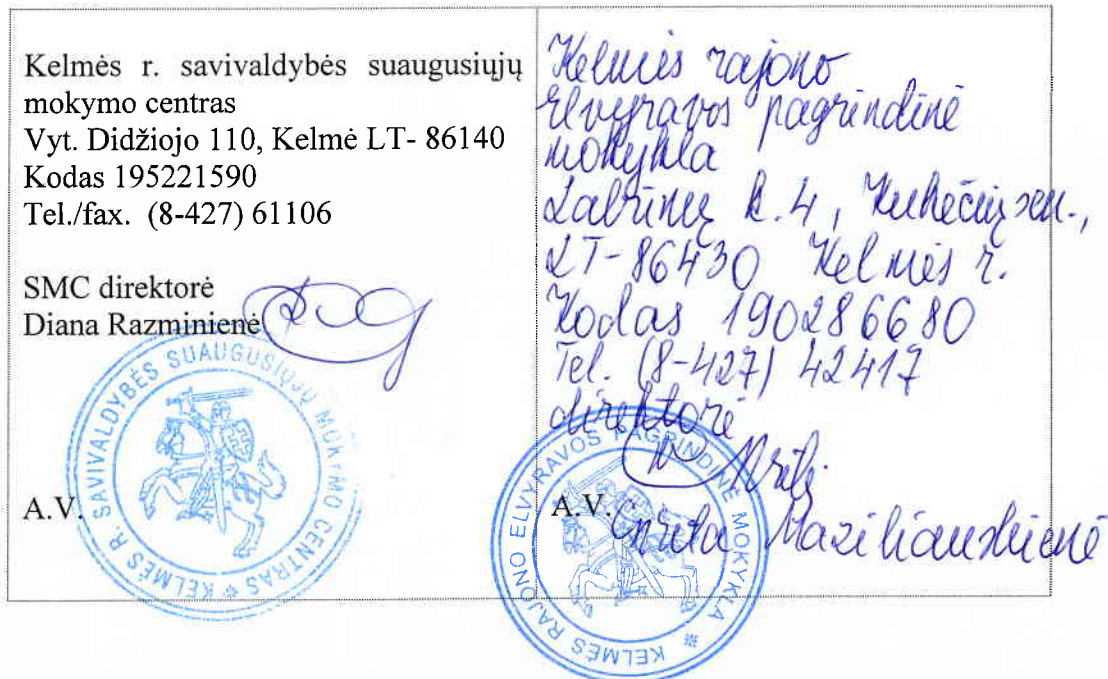 Kelmės r. savivaldybės suaugusiųjų
mokymo centras
Vyt. Didžiojo 110, Kelmė LT- 86140
Kodas 195221590
Tel./fax. (8-427) 61106
SMC direktorė
Diana Razminienė
KELMĖS R. SAVIVALDYBĖS SUAUGUSIŲJŲ MOKYMO CENTRAS
A.V.
Kelmės rajono
Elvyravos pagrindinė
mokykla
k. 4, Kukečių sen.,
LT-86430 Kelmės r.
Kodas 190286680
Tel. (8-427) 42417
direktorė
A.V.
KELMĖS RAJONO ELVYRAVOS PAGRINDINĖ MOKYKLA